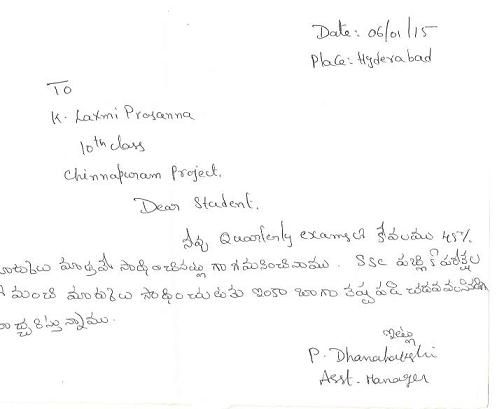 Date: 06/01/15
Place: Hyderabad
To
K. Laxmi Prasanna
10th class
Chinnapuram Project.
Dear Student,
నీవు Quarterly examsలో కేవలము 45%
మార్కులు మాత్రమే సాధించినట్లు గా గమనించినాము. SSC పబ్లిక్ పరీక్షల
మంచి మార్కులు సాధించుటకు ఇంకా బాగా కష్ట పడి చదవవలసినదిగా
ఇట్లు
P.
Asst. Manager